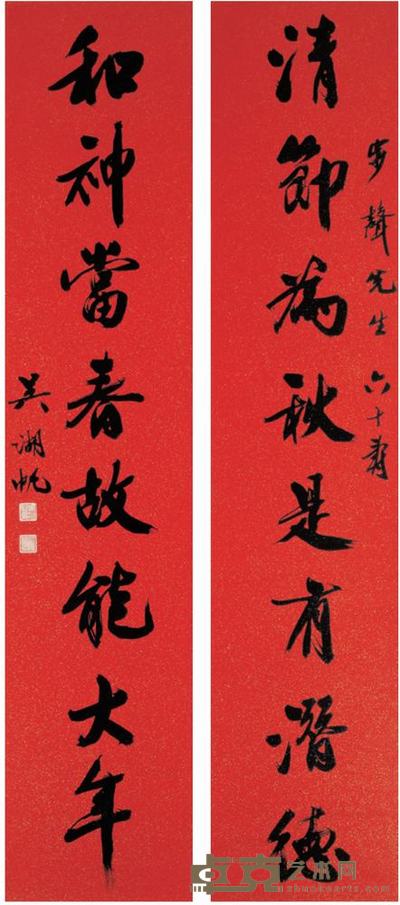 步聲先生 六十壽
清節為秋是有潛德
和神當春故能大年
吳湖帆
卓克艺术网